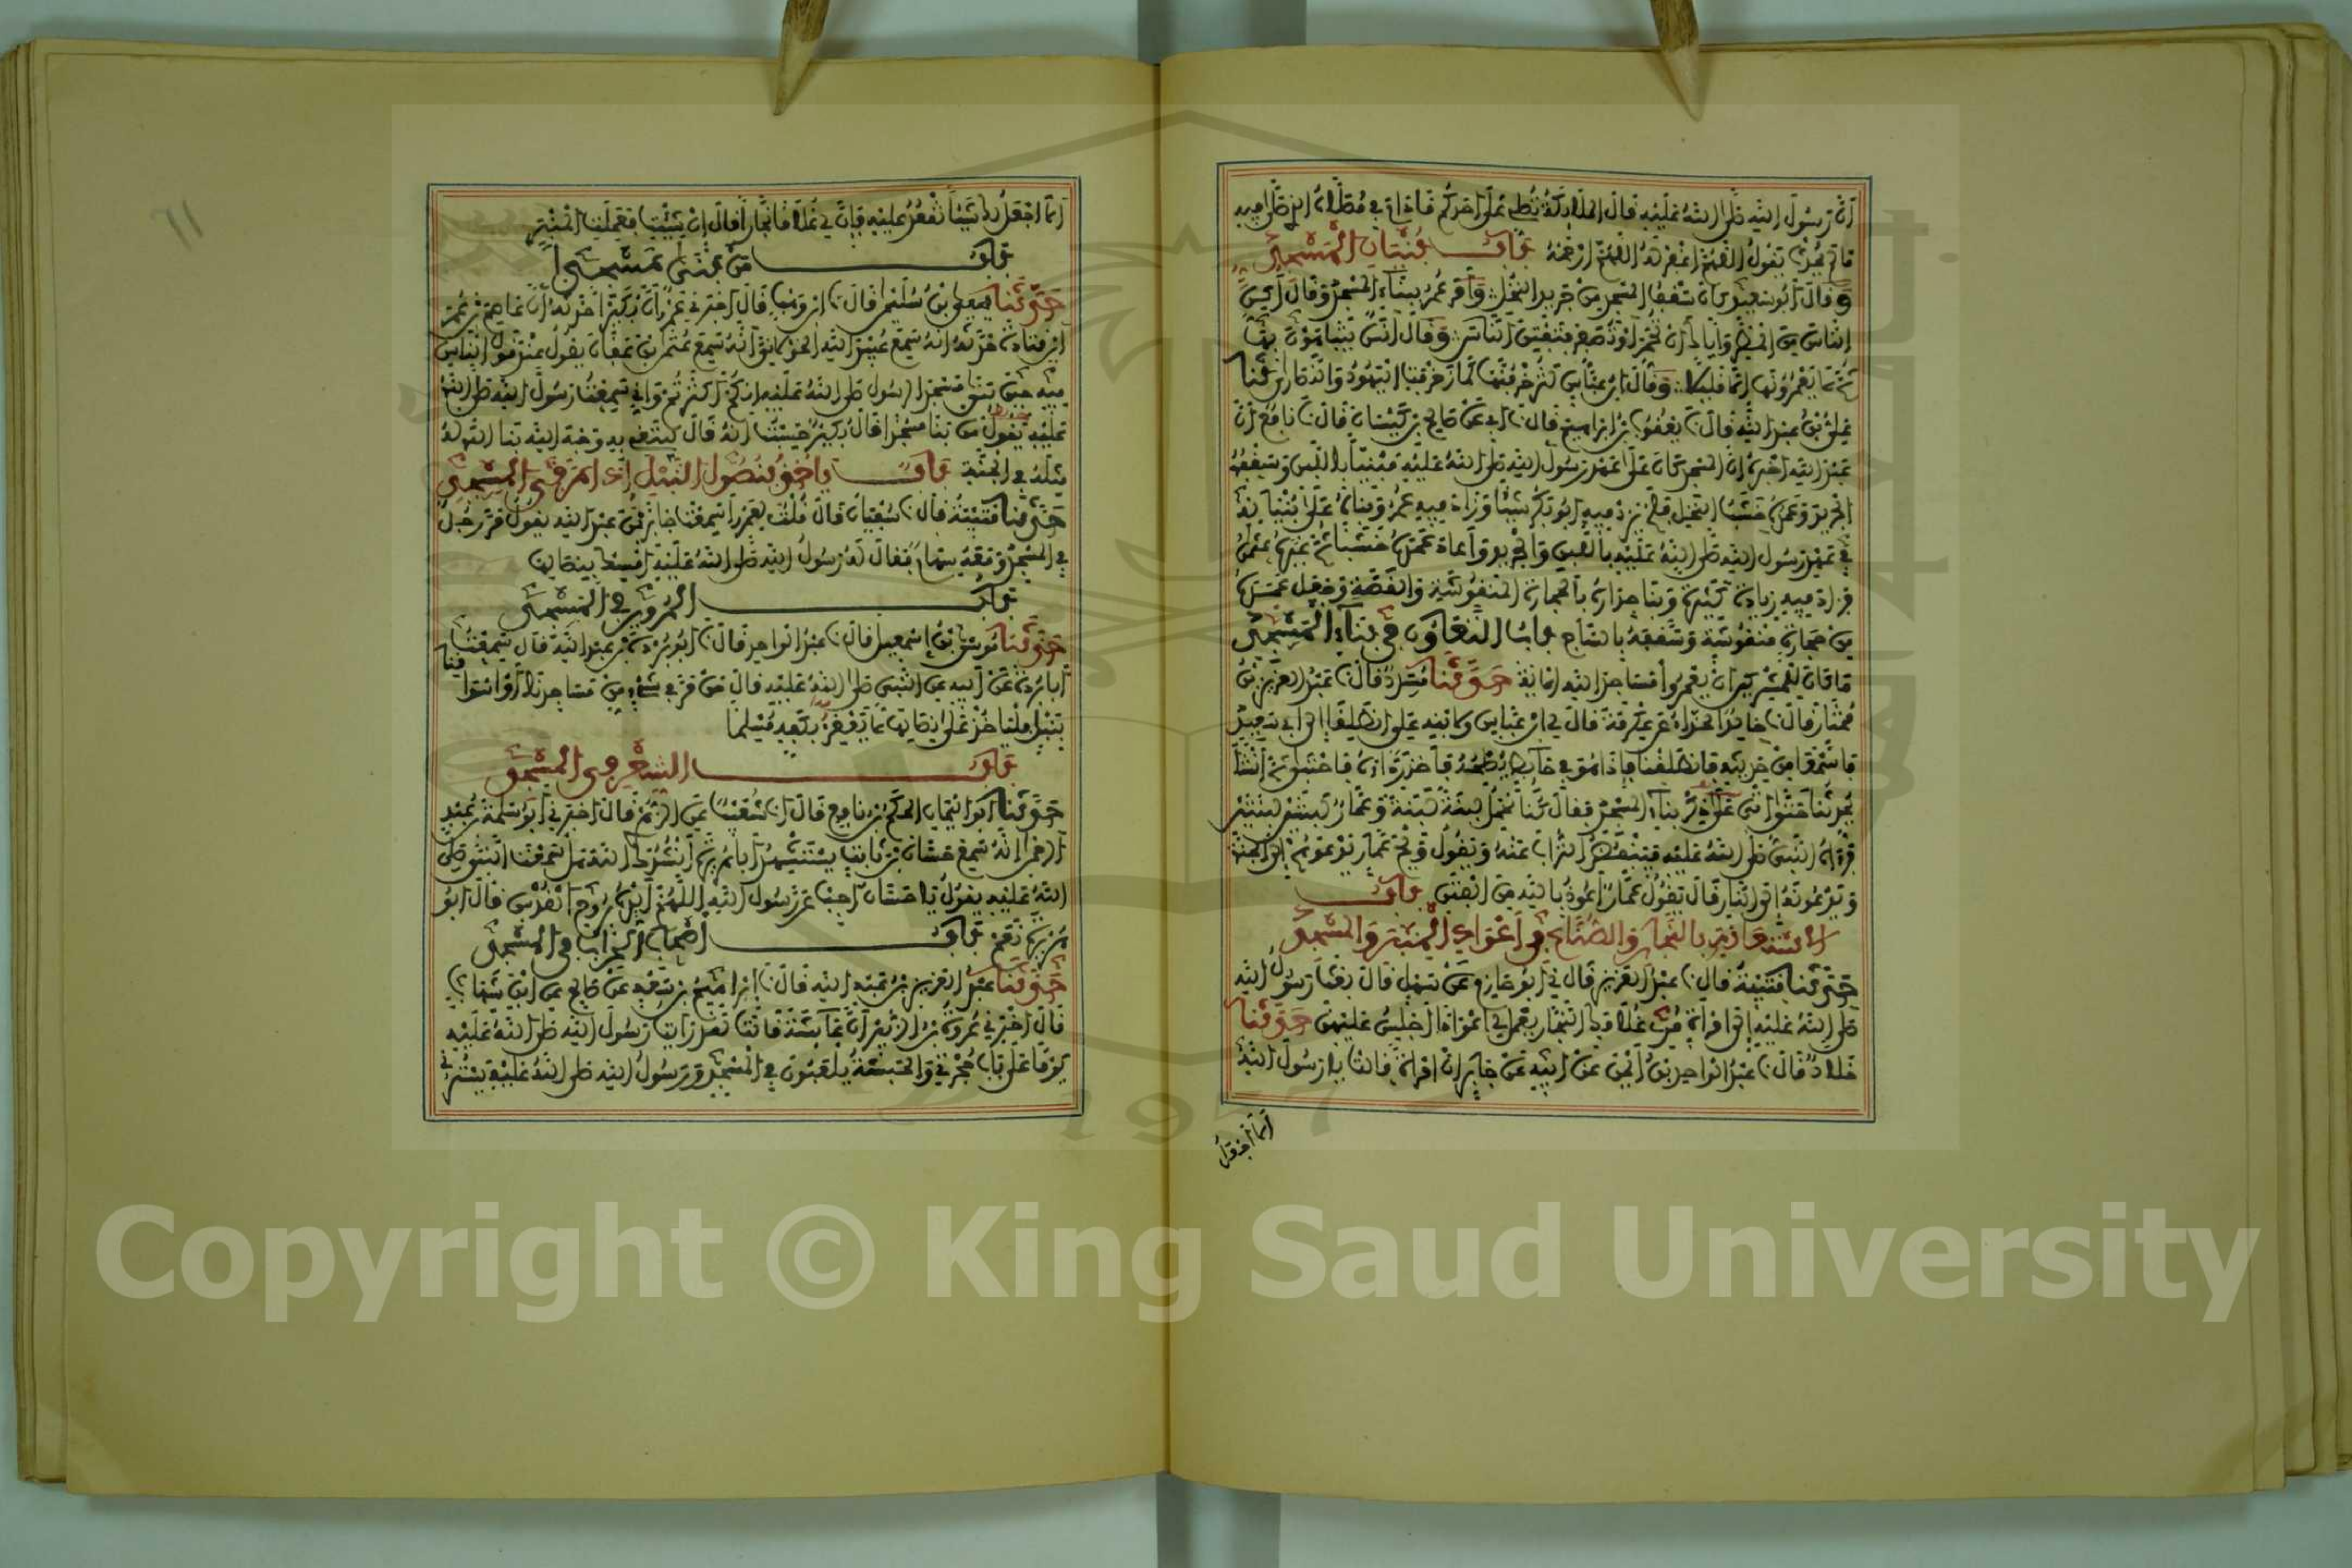 أن رسول الله صلى الله عليه قال الملائكة تصلي على أحدكم ما دام في مصلاه الذي صلى فيه
ما لم يحدث تقول اللهم اغفر له اللهم ارحمه باب بنيان المسجد
وقال أبو سعيد كان سقف المسجد من جريد النخل وأمر عمر ببناء المسجد وقال أكن
الناس من المطر وإياك أن تحمر أو تصفر فتفتن الناس وقال أنس يتباهون بها
ثم ما يعمرونها إلا قليلا وقال ابن عباس لتزخرفنها كما زخرفت اليهود والنصارى حدثنا
علي بن عبد الله قال نا يعقوب بن إبراهيم قال نا أبي عن صالح بن كيسان قال نا نافع أن
عبد الله أخبره أن المسجد كان على عهد رسول الله صلى الله عليه مبنيا باللبن وسقفه
الجريد وعمده خشب النخل فلم يزد فيه أبو بكر شيئا وزاد فيه عمر وبناه على بنيانه
في عهد رسول الله صلى الله عليه باللبن والجريد وأعاد عمده خشبا ثم غيره عثمن
فزاد فيه زيادة كثيرة وبنا جداره بالحجارة المنقوشة والقصة وجعل عمده
من حجارة منقوشة وسقفه بالساج باب التعاون في بناء المسجد
ما كان للمشركين أن يعمروا مساجد الله الآية حدثنا مسدد قال نا عبد العزيز بن
مختار قال نا خالد الحذاء عن عكرمة قال لي ابن عباس ولابنه علي انطلقا إلى أبي سعيد
فاسمعا من حديثه فانطلقنا فإذا هو في حائط يصلحه فأخذ رداءه فاحتبى ثم أنشأ
يحدثنا حتى أتى على ذكر بناء المسجد فقال كنا نحمل لبنة لبنة وعمار لبنتين لبنتين
فرآه النبي صلى الله عليه فينفض التراب عنه ويقول ويح عمار يدعوهم إلى الجنة
ويدعونه إلى النار قال يقول عمار أعوذ بالله من الفتن باب
الاستعانة بالنجار والصناع في أعواد المنبر والمسجد
حدثنا قتيبة قال نا عبد العزيز قال ني أبو حازم عن سهل قال بعث رسول الله
صلى الله عليه إلى امرأة مري غلامك النجار يعمل لي أعوادا أجلس عليهن حدثنا
خلاد قال نا عبد الواحد بن أيمن عن أبيه عن جابر أن امرأة قالت يا رسول الله
ألا أجعل
ألا أجعل لك شيئا تقعد عليه فإن لي غلاما نجارا قال إن شئت فعملت المنبر
باب من بنى مسجدا
حدثنا يحيى بن سليمن قال نا ابن وهب قال أخبرني عمرو أن بكيرا أخبره أن عاصم بن عمر
ابن قتادة حدثه أنه سمع عبيد الله الخولاني أنه سمع عثمن بن عفان يقول عند قول الناس
فيه حين بنى مسجد الرسول صلى الله عليه إنكم أكثرتم وإني سمعت رسول الله صلى الله
عليه يقول من بنا مسجدا قال بكير حسبت أنه قال يبتغي به وجه الله بنا الله له
مثله في الجنة باب يأخذ بنصول النبل إذا مر في المسجد
حدثنا قتيبة قال نا سفيان قال قلت لعمرو أسمعت جابر بن عبد الله يقول مر رجل
في المسجد ومعه سهام فقال له رسول الله صلى الله عليه أمسك بنصالها
باب المرور في المسجد
حدثنا موسى بن إسمعيل قال نا عبد الواحد قال نا أبو بردة بن عبد الله قال سمعت
أبا بردة عن أبيه عن النبي صلى الله عليه قال من مر في شيء من مساجدنا أو أسواقنا
بنبل فليأخذ على نصالها لا يعقر بكفه مسلما
باب الشعر في المسجد
حدثنا أبو اليمان الحكم بن نافع قال أنا شعيب عن الزهري قال أخبرني أبو سلمة بن عبد
الرحمن أنه سمع حسان بن ثابت يستشهد أبا هريرة أنشدك الله هل سمعت النبي صلى
الله عليه يقول يا حسان أجب عن رسول الله اللهم أيده بروح القدس قال أبو
هريرة نعم باب أصحاب الحراب في المسجد
حدثنا عبد العزيز بن عبد الله قال نا إبراهيم بن سعد عن صالح عن ابن شهاب
قال أخبرني عروة بن الزبير أن عائشة قالت لقد رأيت رسول الله صلى الله عليه
يوما على باب حجرتي والحبشة يلعبون في المسجد ورسول الله صلى الله عليه يسترني
61
Copyright © King Saud University
1957